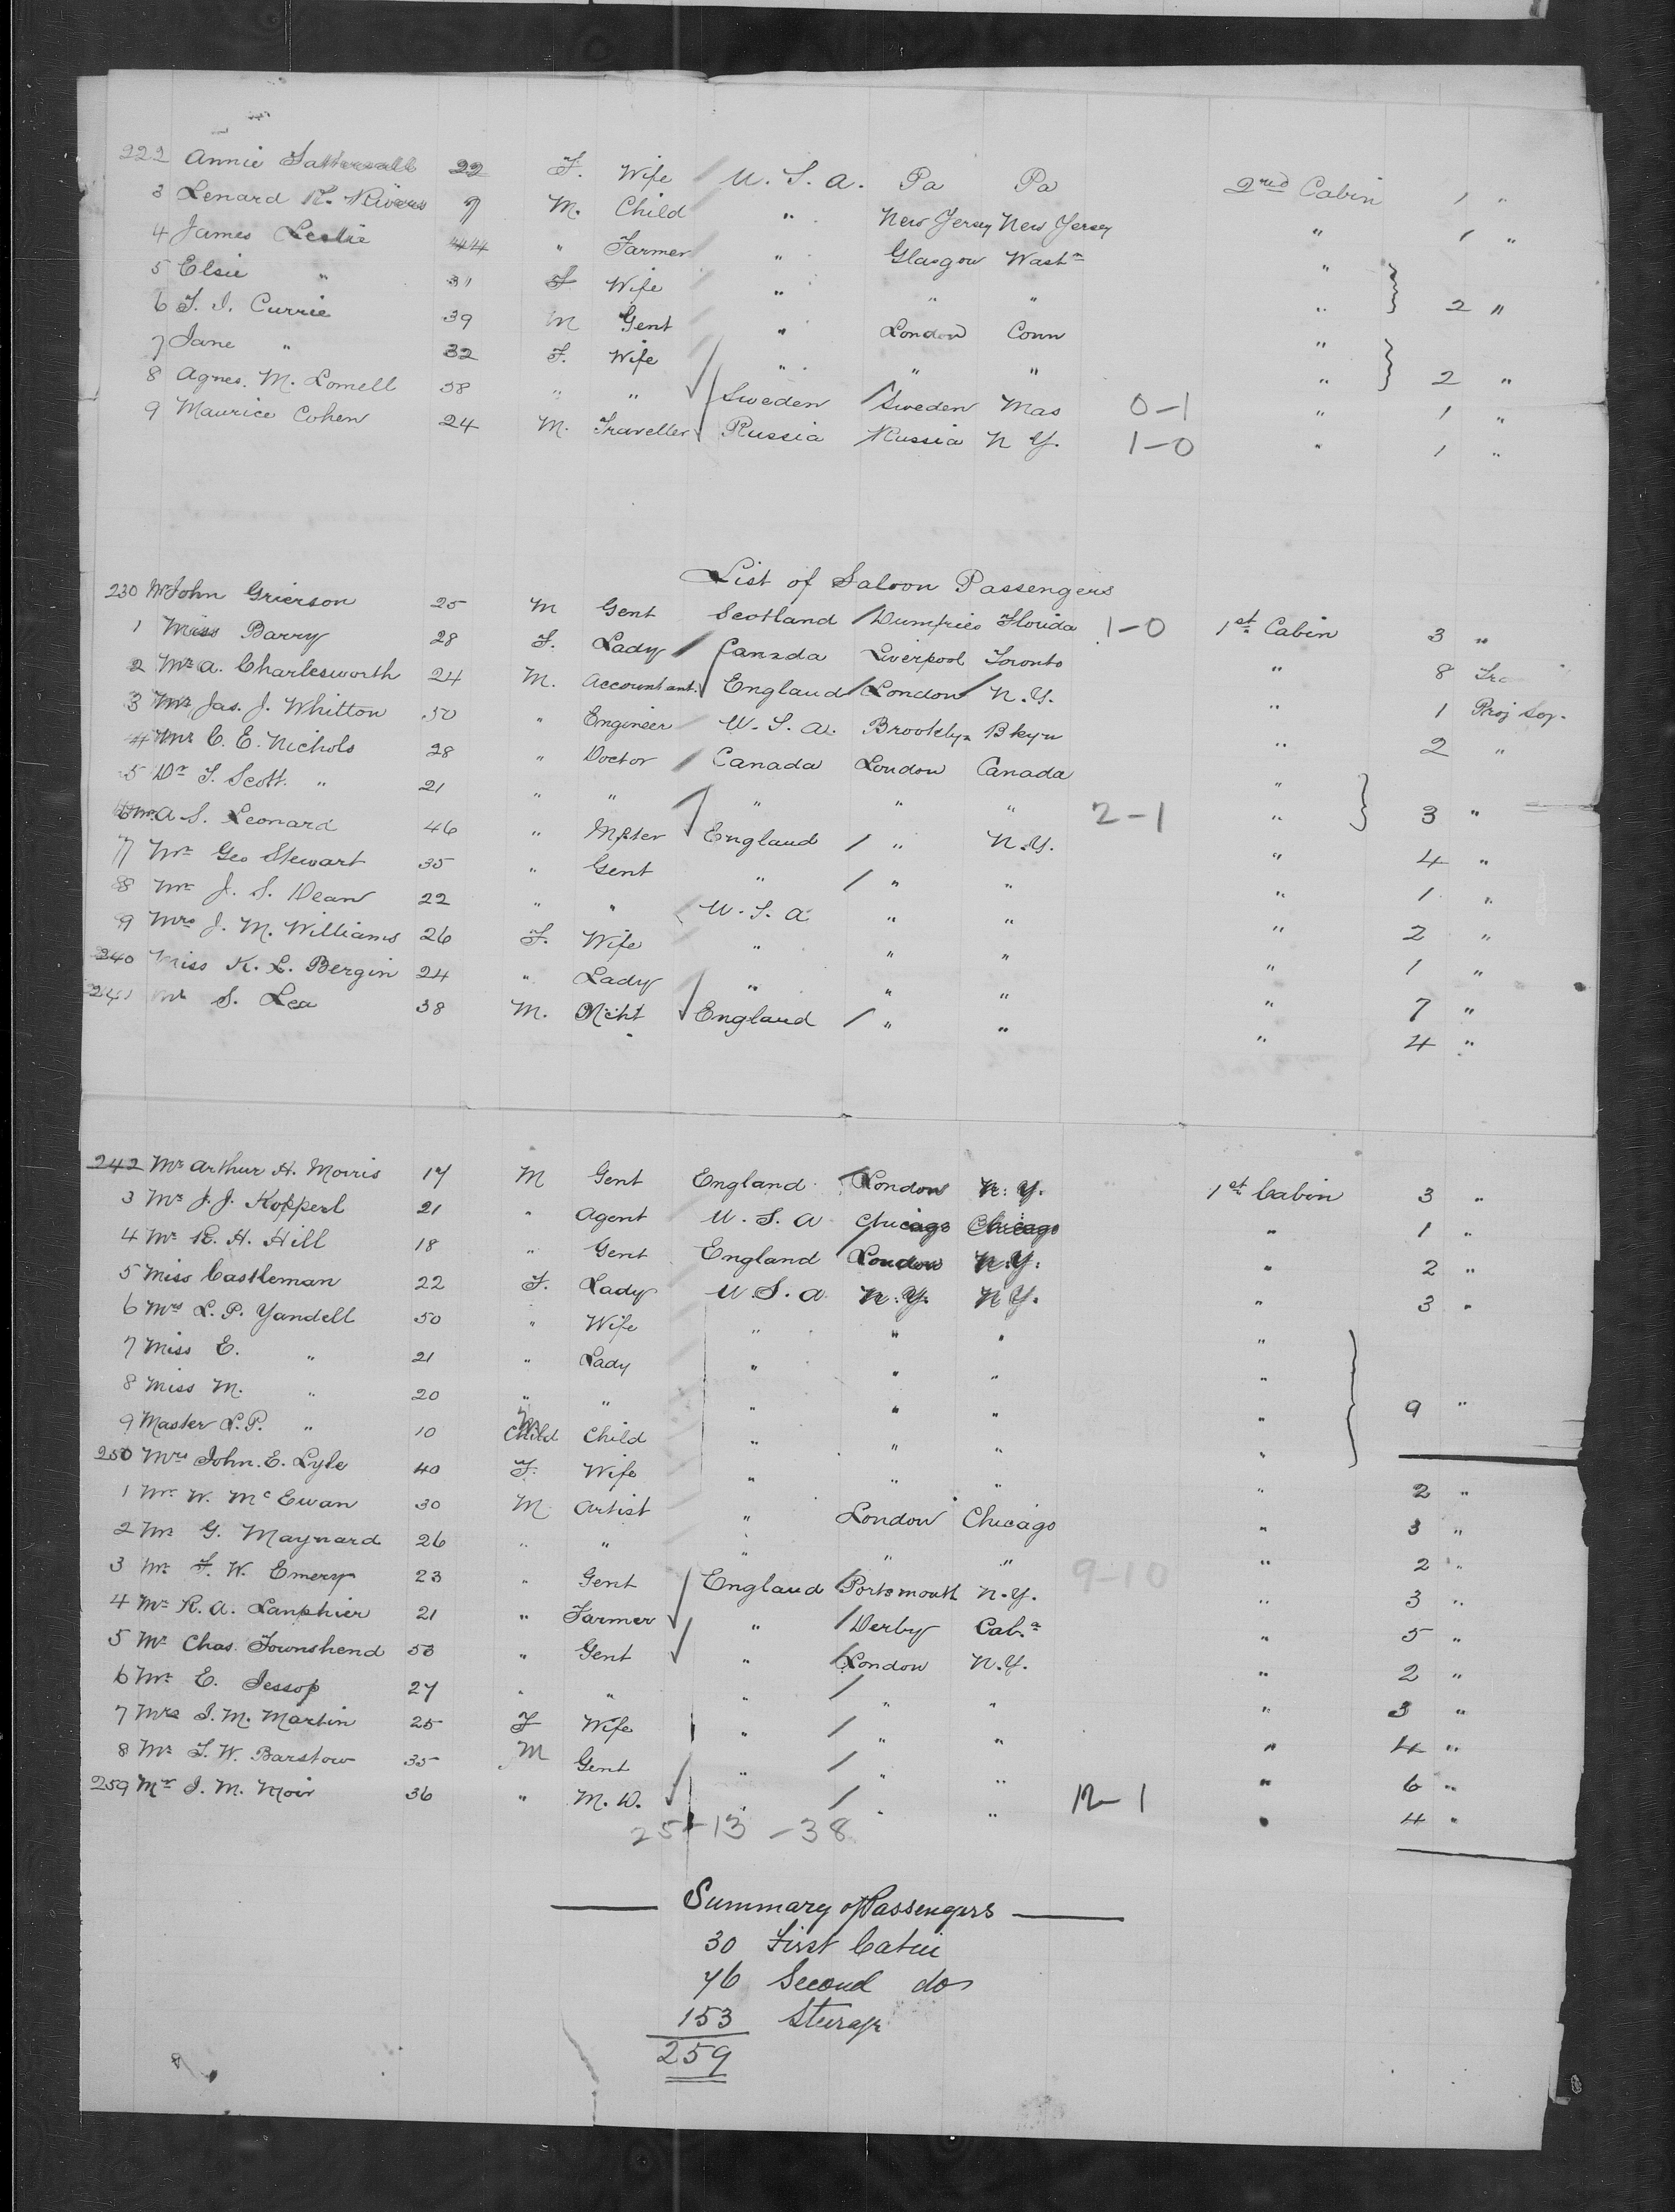 222 Annie Sattersall 22 F. Wife U. S. A. Pa Pa 2nd Cabin 1 "
3 Lenard K. Rivers 7 M. Child " New Jersey New Jersey " 1 "
4 James Leslie 44 " Farmer " Glasgow Washn "
5 Elsie " 31 F Wife " " " " 2 "
6 T. I. Currie 39 M Gent " London Conn "
7 Jane " 32 F. Wife " " " " 2 "
8 Agnes. M. Lomell 58 " " Sweden Sweden Mas 0-1 " 1 "
9 Maurice Cohen 24 M. Traveller Russia Russia N Y. 1-0 " 1 "
List of Saloon Passengers
230 Mr John Grierson 25 M Gent Scotland Dumfries Florida 1-0 1st Cabin 3 "
1 Miss Barry 28 F. Lady Canada Liverpool Toronto " 8
2 Mr A. Charlesworth 24 M. Accountant. England London N. Y. " 1
3 Mr Jas. J. Whitton 50 " Engineer U. S. A. Brooklyn Bkyn " 2 "
4 Mr C. E. Nichols 28 " Doctor Canada London Canada "
5 Dr T. Scott. " 21 " " " " " 2-1 " 3 "
6 Mr. A. S. Leonard 46 " England " N. Y. " 4 "
7 Mr Geo Stewart 35 " Gent " " " " 1 "
8 Mr J. S. Dean 22 " " U. S. A " " " 2 "
9 Mrs J. M. Williams 26 F. Wife " " " " 1 "
240 Miss K. L. Bergin 24 " Lady " " " " 7 "
241 Mr S. Lea 38 M. Mcht England " " " 4 "
242 Mr Arthur H. Morris 17 M Gent England London N. Y. 1st Cabin 3 "
3 Mr J. J. Kopperl 21 " Agent U. S. A Chicago Chicago " 1 "
4 Mr R. H. Hill 18 " Gent England London N. Y. " 2 "
5 Miss Castleman 22 F. Lady U. S. A. N. Y. N Y. " 3 "
6 Mrs L. P. Yandell 50 " Wife " " " "
7 Miss E. " 21 " Lady " " " "
8 Miss M. " 20 " " " " " " 9 "
9 Master L. P. " 10 M Child Child " " " "
250 Mrs John. E. Lyle 40 F. Wife " " " " 2 "
1 Mr W. McEwan 30 M Artist " London Chicago " 3 "
2 Mr G. Maynard 26 " " " " " " 2 "
3 Mr F. W. Emery 23 " Gent England Portsmouth N. Y. 9-10 " 3 "
4 Mr R. A. Lanphier 21 " Farmer " Derby Cala " 5 "
5 Mr Chas. Townshend 53 " Gent " London N. Y. " 2 "
6 Mr E. Jessop 27 " " " " " " 3 "
7 Mrs I. M. Martin 25 F Wife " " " " 4 "
8 Mr T. W. Barstow 35 M Gent " " " " 6 "
259 Mr J. M. Moir 36 " M. D. " " " 12-1 " 4 "
25-13-38
Summary of Passengers
30 First Cabin
76 Second do
153 Steerage
259